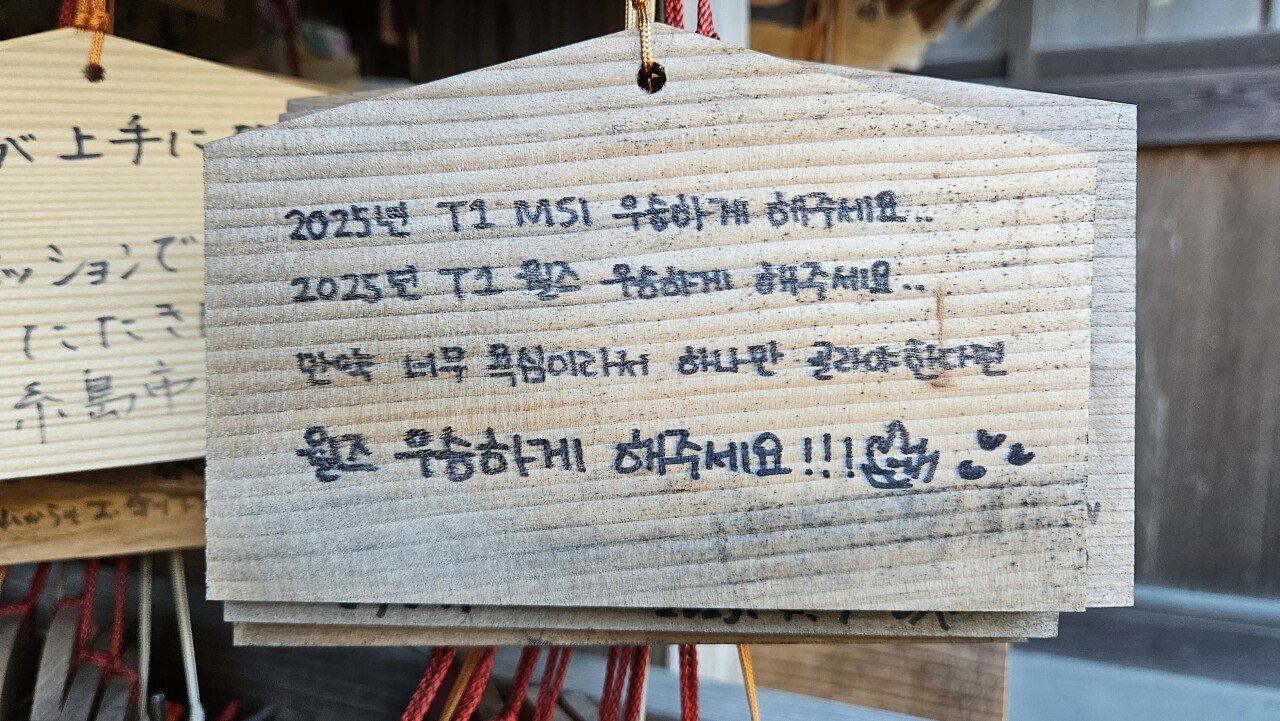 が上手に
ッションで
たたき
糸島市
2025년 T1 MSI 우승하게 해주세요..
2025년 T1 월즈 우승하게 해주세요..
만약 너무 욕심이라서 하나만 골라야한다면
월즈 우승하게 해주세요!!!